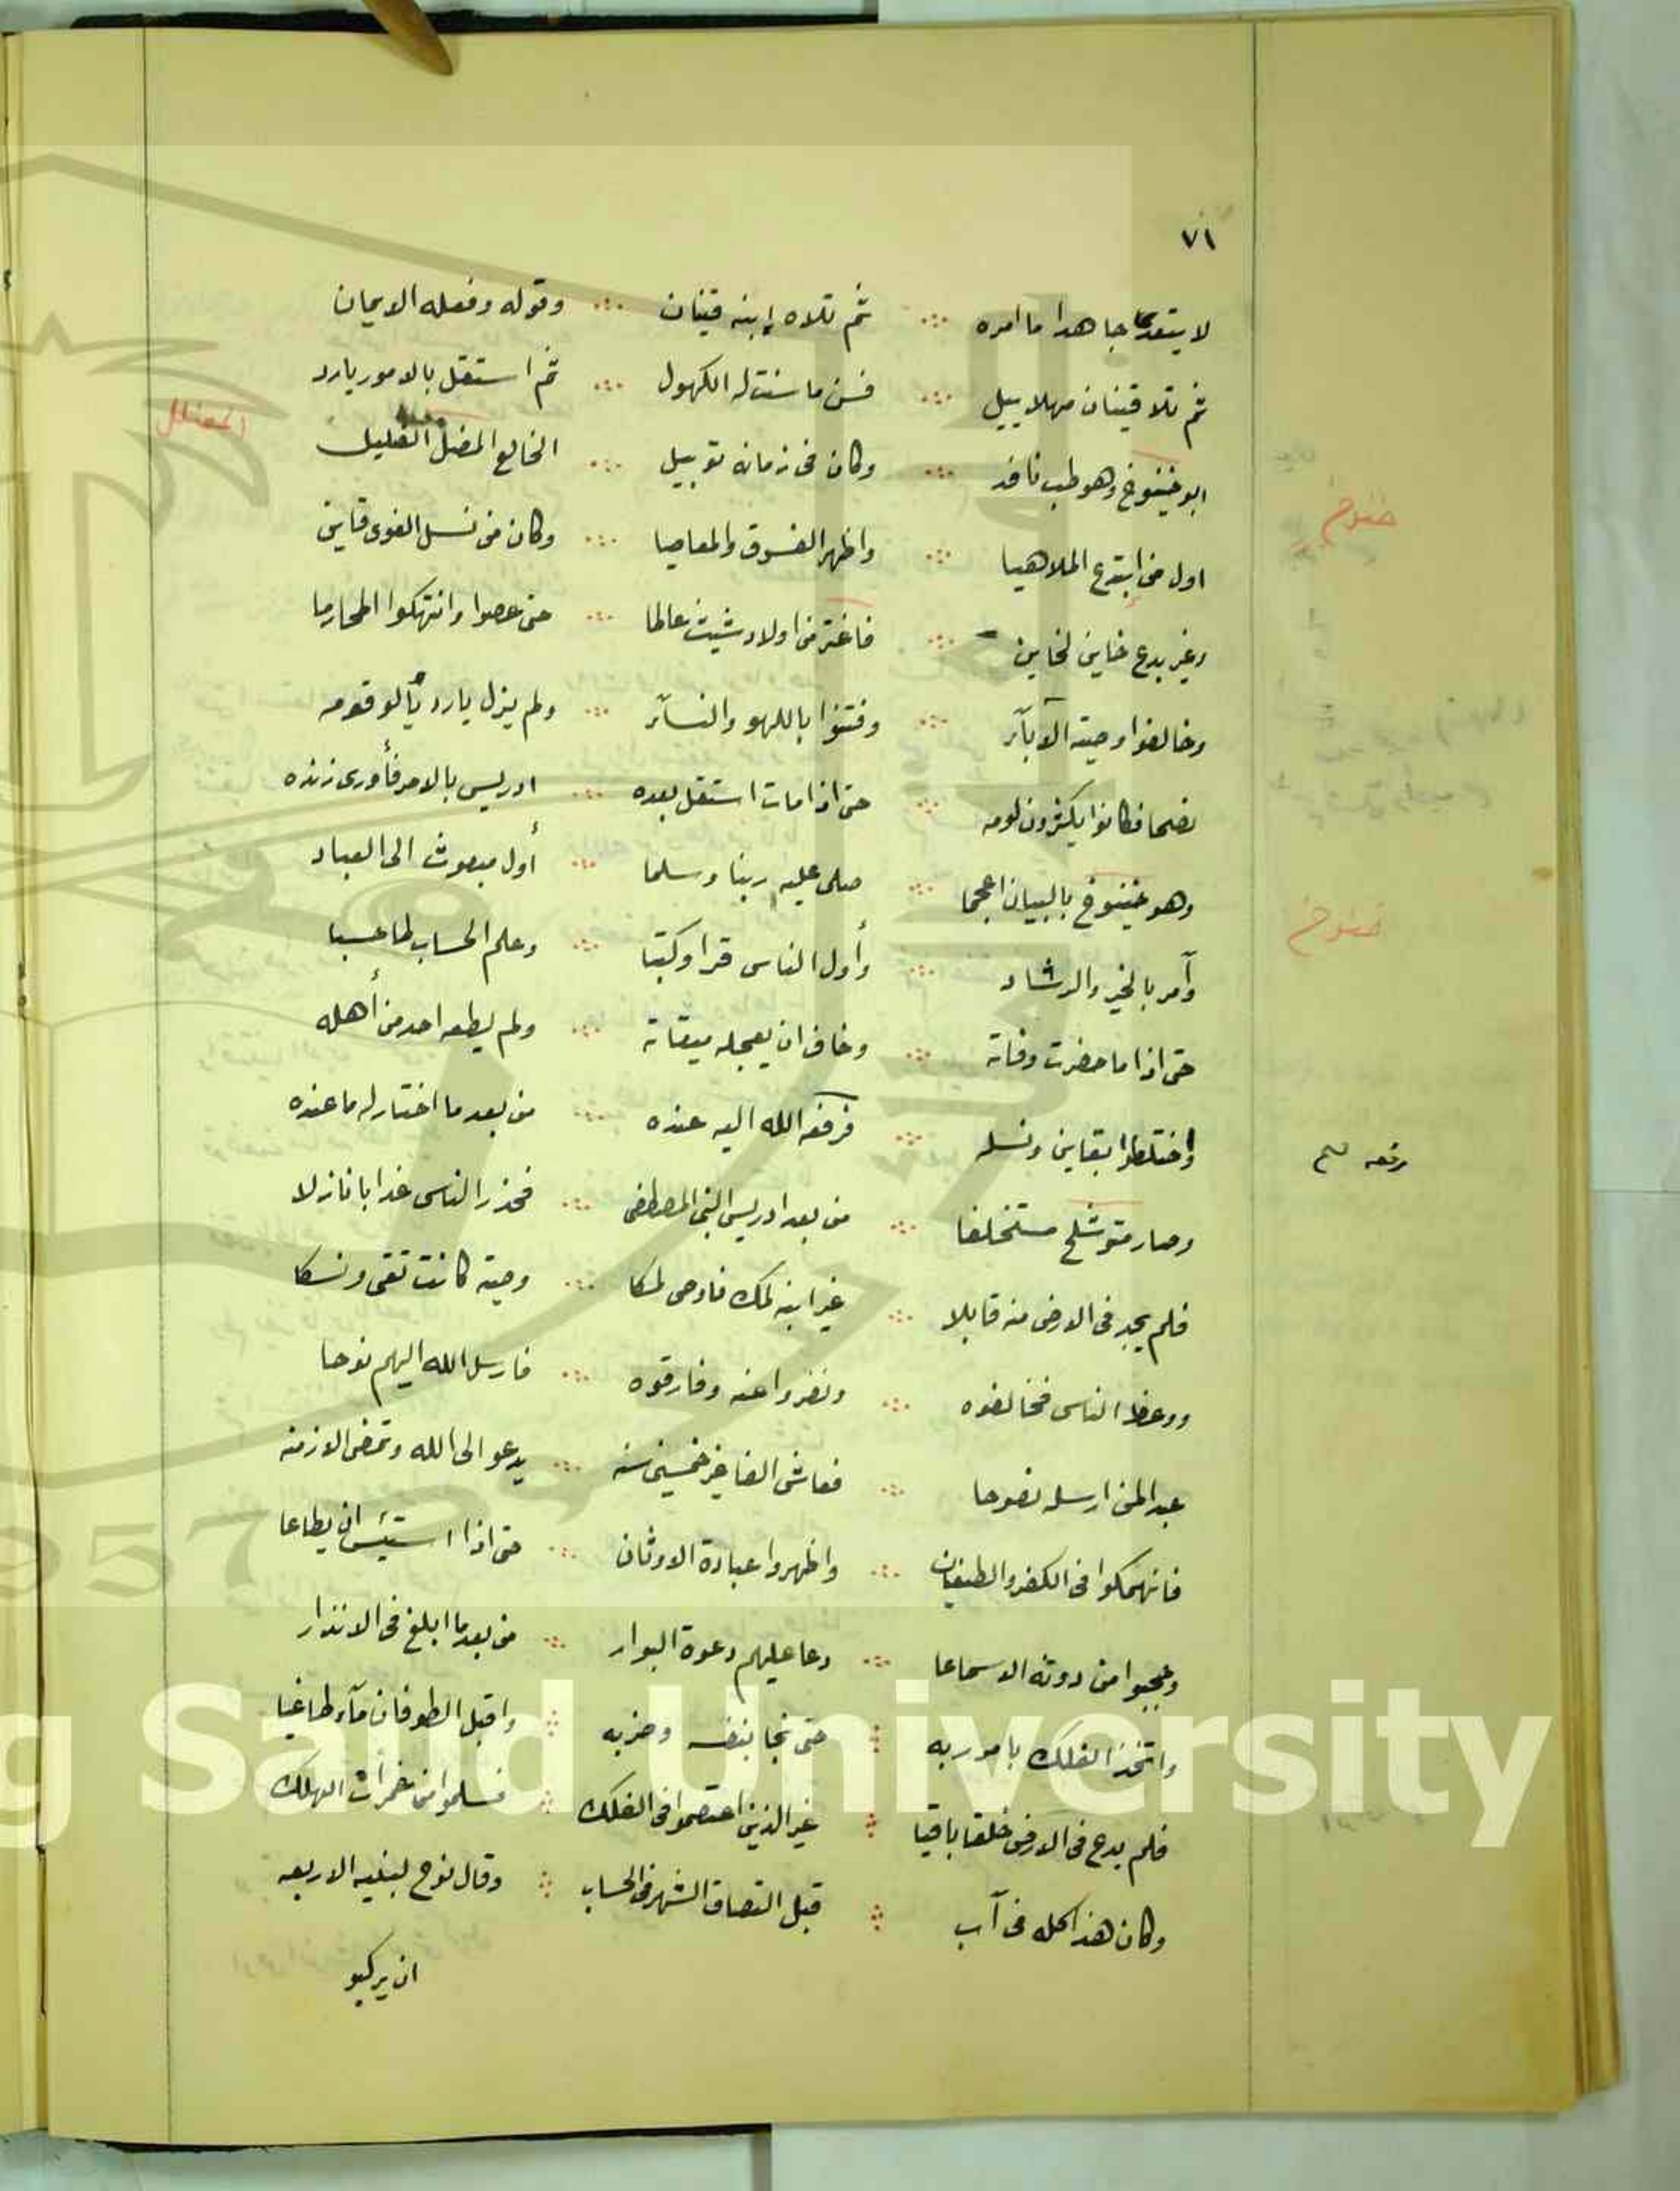 ٧١
لا يتعدى جاهدا ما امره ∴ ثم تلاه إبنه قينان ∴ وقوله وفعله الايمان
ثم تلا قينان مهلاييل ∴ فسن ما سنت له الكهول ∴ ثم استقل بالامور يارد
المضلل
ابو خنوخ وهو طب ناقد ∴ وكان فى زمانه توبيل ∴ الخالع المضلل الضليل
خنوخ
اول من ابتدع الملاهيا ∴ واظهر الفسوق والمعاصيا ∴ وكان من نسل الغوى قاين
وغير بدع خاين لخاين ∴ فاغتر من اولاد شيث عالما ∴ حتى عصوا وانتهكوا المحارما
وخالفوا وصية الآبآء ∴ وفتنوا باللهو والنسآء ∴ ولم يزل يارد يألو قومه
نصحا فكانوا يكثرون لومه ∴ حتى اذا مات استقل بعده ∴ ادريس بالامر فأورى زنده
وهو خنوخ بالبيان اعجما ∴ صلى عليه ربنا وسلما ∴ أول مبعوث الى العباد
خنوخ
وآمر بالخير والرشاد ∴ وأول الناس قرا وكتبا ∴ وعلم الحساب لما حسبا
حتى اذا ما حضرت وفاته ∴ وخاف ان يعجله ميقاته ∴ ولم يطعه احد من أهله
واختلطوا بقاين ونسله ∴ فرفعه الله اليه عنده ∴ من بعد ما اختار له ما عنده
رفعه صح
وصار متوشلخ مستخلفا ∴ من بعد ادريس النبى المصطفى ∴ فحذر الناس عذابا نازلا
فلم يجد فى الارض منه قابلا ∴ غير ابنه لمك فاوصى لمكا ∴ وصية كانت تقى ونسكا
ووعظ الناس فخالفوه ∴ ونفروا عنه وفارقوه ∴ فارسل الله اليهم نوحا
عبدا لمن ارسله نصوحا ∴ فعاش الفا غير خمسين سنه ∴ يدعو الى الله وتمضى الازمنه
فانهمكوا فى الكفر والطغيان ∴ واظهروا عبادة الاوثان ∴ حتى اذا استيئس ان يطاعا
وحجبوا من دونه الاسماعا ∴ دعا عليهم دعوة البوار ∴ من بعد ما ابلغ فى الانذار
واتخذ الفلك بامر ربه ∴ حتى نجا بنفسه وحزبه ∴ واقبل الطوفان مآء طاغيا
فلم يدع فى الارض خلقا باقيا ∴ غير الذين اعتصموا فى الفلك ∴ فسلموا من غمرات الهلك
وكان هذا كله فى آب ∴ قبل انتصاف الشهر فى الحساب ∴ وقال نوح لبنيه الاربعه
ان يركبو
King Saud University
1957